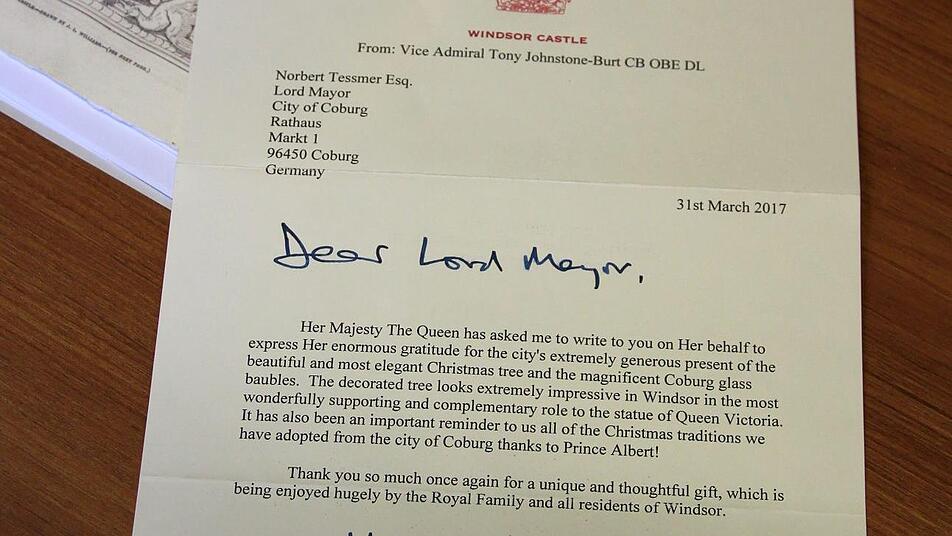 WINDSOR CASTLE
From: Vice Admiral Tony Johnstone-Burt CB OBE DL
Norbert Tessmer Esq.
Lord Mayor
City of Coburg
Rathaus
Markt 1
96450 Coburg
Germany
31st March 2017
Dear Lord Mayor,
Her Majesty The Queen has asked me to write to you on Her behalf to
express Her enormous gratitude for the city's extremely generous present of the
beautiful and most elegant Christmas tree and the magnificent Coburg glass
baubles. The decorated tree looks extremely impressive in Windsor in the most
wonderfully supporting and complementary role to the statue of Queen Victoria.
It has also been an important reminder to us all of the Christmas traditions we
have adopted from the city of Coburg thanks to Prince Albert!
Thank you so much once again for a unique and thoughtful gift, which is
being enjoyed hugely by the Royal Family and all residents of Windsor.